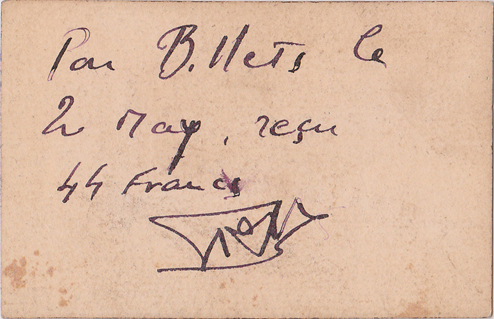 Pour Billets le
2 May, reçu
44 Francs